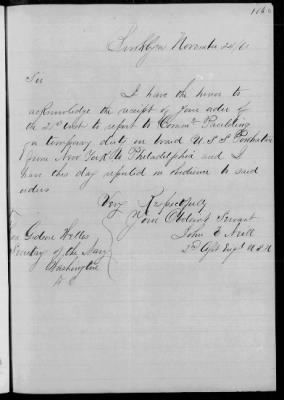 Brooklyn November 24/61
Sir
I have the honor to
acknowledge the receipt of your order of
the 21st inst to report to Comm. Paulding
on temporary duty on board U.S.S. Powhatan
from New York to Philadelphia and I
have this day reported in obedience to said
orders
Very Respectfully
Your Obedient Servant
John E
2nd Asst Engr U.S.N
Hon Gideon Welles
Secretary of the Navy
Washington